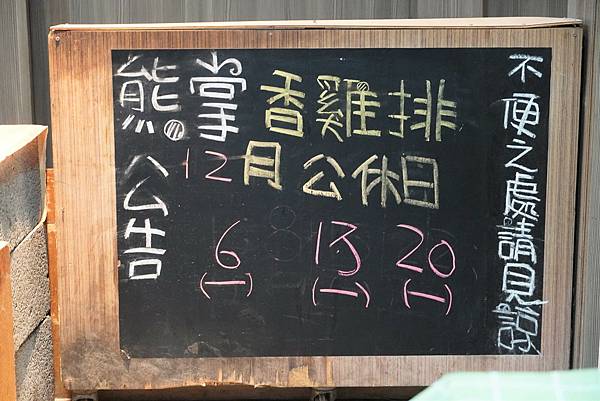 熊掌香雞排
公告
12月公休日
6 13 20
(一) (一) (一)
不便之處請見諒